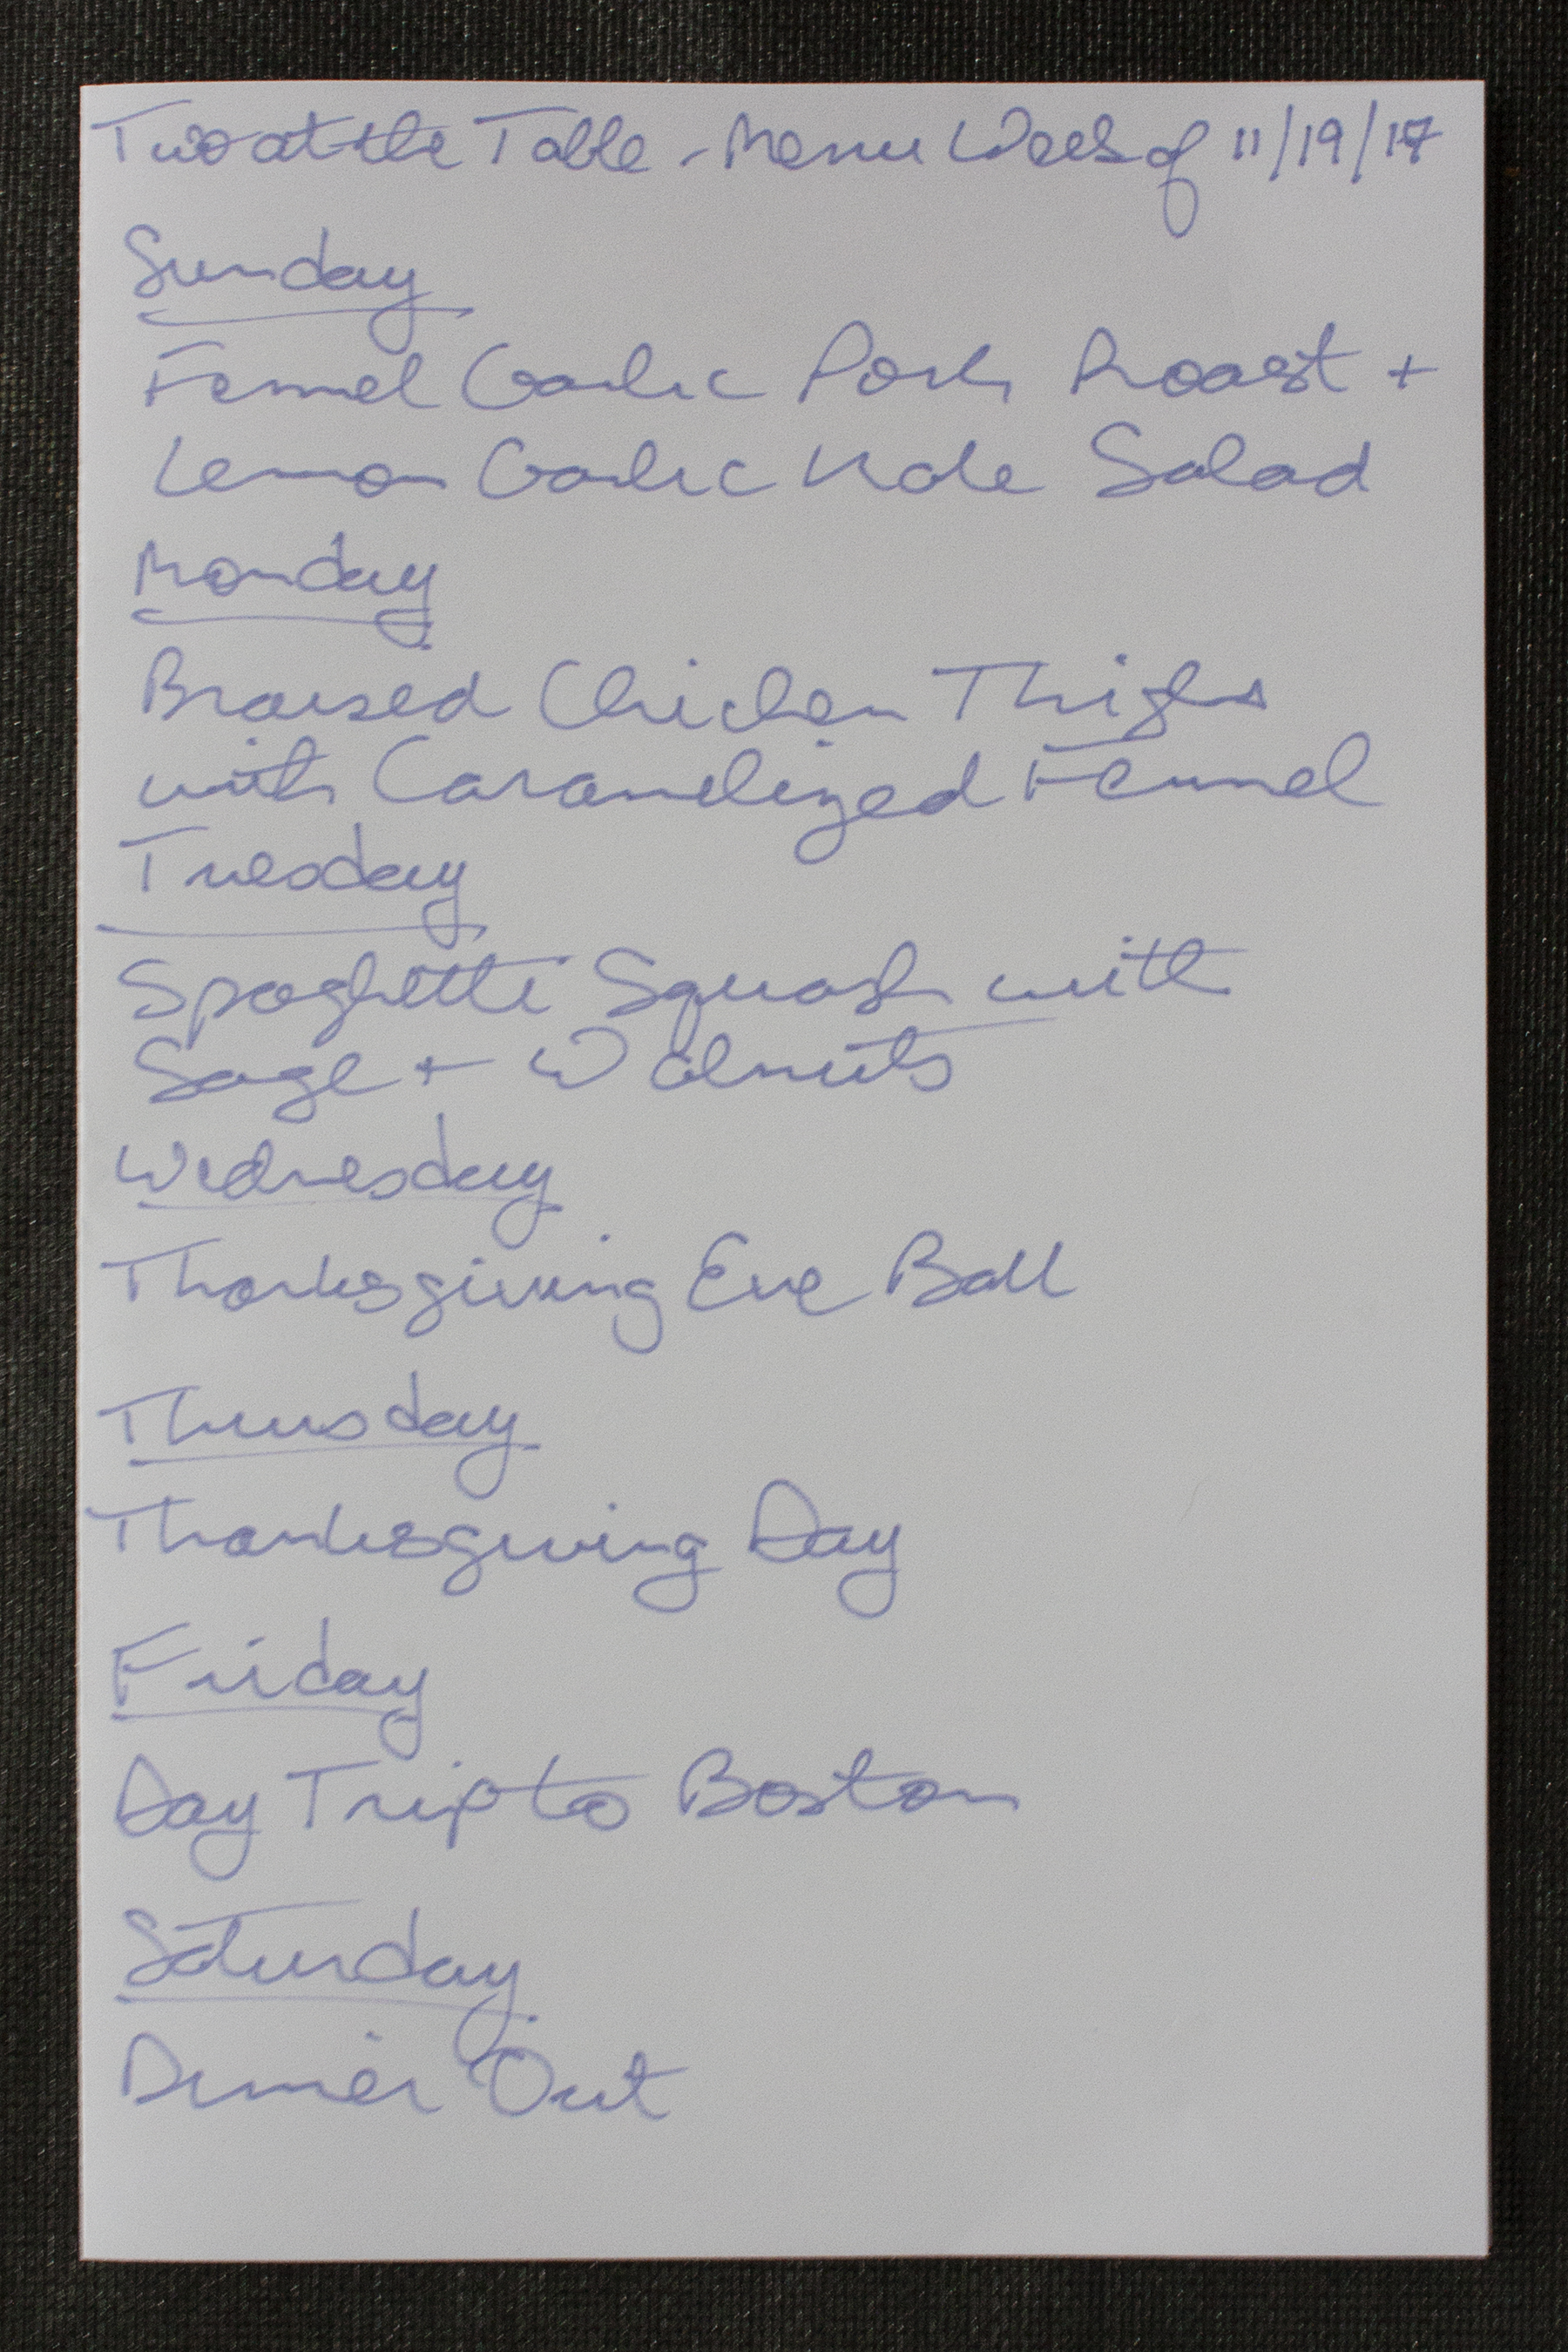 Two at the Table - Menu Week of 11/19/17
Sunday
Fennel Garlic Pork Roast +
Lemon Garlic Kale Salad
Monday
Braised Chicken Thighs
with Caramelized Fennel
Tuesday
Spaghetti Squash with
Sage + Walnuts
Wednesday
Thanksgiving Eve Ball
Thursday
Thanksgiving Day
Friday
Day Trip to Boston
Saturday
Dinner Out